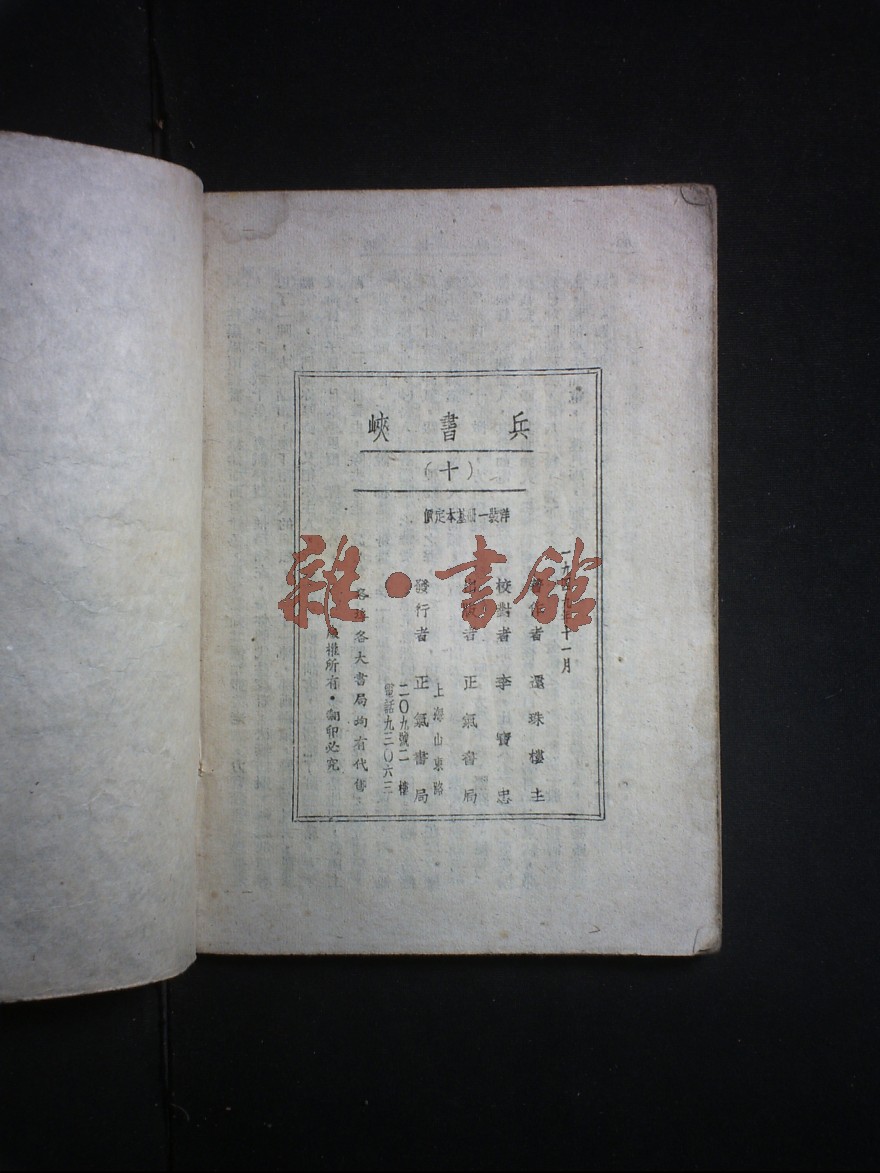 兵書峽
(十)
洋裝一冊基本定價
一九四九年十一月
著作者 還珠樓主
校對者 李寶忠
出版者 正氣書局
發行者 正氣書局
上海山東路
二〇九號二樓
電話九三〇六三
各埠各大書局均有代售
版權所有·翻印必究
雜·書館